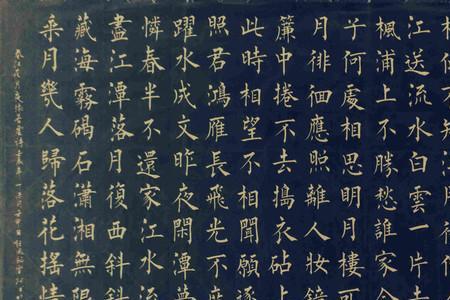 相似不知江月待何
江送流水白雲一片去
楓浦上不勝愁誰家今
子何處相思明月樓可
月徘徊應照離人妝鏡
簾中捲不去搗衣砧上
此時相望不相聞願逐
照君鴻雁長飛光不度
躍水成文昨夜閒潭夢
憐春半不還家江水流
盡江潭落月復西斜斜
藏海霧碣石瀟湘無限
乘月幾人歸落花搖情
春江花月夜張若虛詩